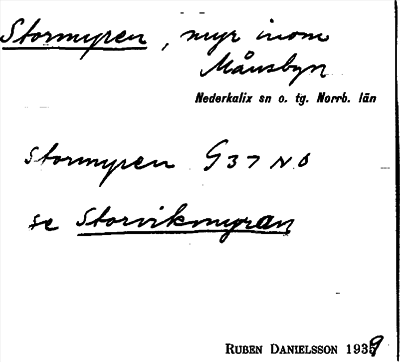 Stormyren, myr inom
Månsbyn
Nederkalix sn o. tg. Norrb. län
Stormyren G 37 N O
se Storvikmyran
RUBEN DANIELSSON 1939